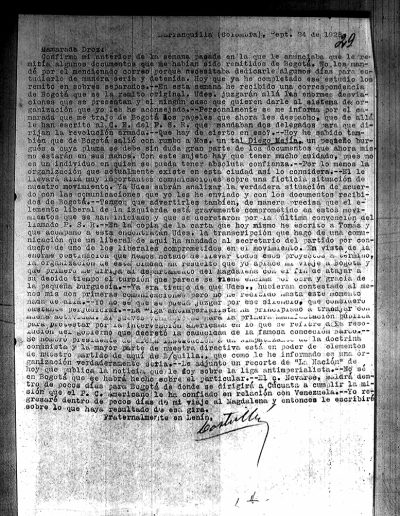 Barranquilla (Colombia), Sept. 24 de 1928
Camarada Droz:
Confirmo mi anterior de la semana pasada en la que le anunciaba que le re-
mitía algunos documentos que me habían sido remitidos de Bogotá. No los man-
dé por el mencionado correo porque necesitaba dedicarle algunos días para es-
tudiarlo de manera seria y detenida. Hoy que ya he completado ese estudio los
remito en sobres separados.--En esta semana he recibido una correspondencia
de Bogotá que se la remito original. Udes. juzgarán allá las enormes desvia-
ciones que se presentan y el ningún caso que quieren darle al sistema de or-
ganización que yo les he aconsejado.--Personalmente se me informa por el ca-
marada que me traje de Bogotá los papeles que ahora les despacho, que de allá
le han escrito al C. E. del P.S.R., que mandaran dos delegados para que di-
rijan la revolución armada.--Que hay de cierto en eso?--Hoy he sabido tam-
bién que de Bogotá salió con rumbo a Mos. un tal Diego Mejía, un pequeño bur-
gués a cuya pluma se debe sin duda gran parte de los documentos que ahora mis-
mo estarán en sus manos. Con este sujeto hay que tener mucho cuidado, pues no
es un individuo en quien se pueda tener absoluta confianza.--Por lo menos la
organización que actualmente existe en esta ciudad así lo considera.--El le
llevará allá muy importantes comunicaciones sobre una ficticia situación de
nuestro movimiento. Ya Udes sabrán analizar la verdadera situación de acuer-
do con las comunicaciones que yo les he enviado y con los documentos recibi-
dos de Bogotá.--Tengo que advertirles también, de manera precisa que el e-
lemento liberal de la izquierda está gravemente comprometido en estos movi-
mientos que se han iniciado y que se decretaron por la última convención del
llamado P. S. R.--En la copia de la carta que hoy mismo he escrito a Tomás y
que acompaño a esta encontrarán Udes. la transcripción que hago de una comu-
nicación que un liberal de aquí ha mandado al secretario del partido por con-
cepto de uno de los liberales comprometidos en el movimiento. En vista de la
enorme obstinación que hemos notado de llevar todos esos proyectos a término,
la organización de esta ciudad ha resuelto que yo aplace un viaje a Bogotá y
que primero me dirija al departamento del Magdalena con el fin de atacar a
su debido tiempo el turbión que parece se viene encima por obra y gracia de
la pequeña burguesía.--Ya era tiempo de que Udes., hubieran contestado al me-
nos mis dos primeras comunicaciones pero no he recibido hasta este momento
nada de allá.--Yo no sé que se pueda juzgar por ese silencio, que considero
bastante perjudicial.--La liga antimperialista ha principiado a trabajar con
la primera manifestación pública
para protestar por la intervención americana en lo que se refiere a la reso-
lución del gobierno que decretó la caducidad de la famosa concesión Barco.--
de la doctrina
comunista y la mayor parte de nuestra directiva está en poder de elementos
de nuestro partido de aquí de B/quilla., que como le he informado es una or-
ganización verdaderamente seria.--Le adjunto un recorte de "La Nación" de
hoy que publica la noticia que le fue sobre la liga antimperialista.--No sé
en Bogotá que se habrá hecho sobre el particular.--El c. Nevares, saldrá den-
tro de pocos días para Bogotá de donde se dirigirá a Cúcuta a cumplir la mi-
sión que el P. C. americano le ha confiado en relación con Venezuela.--Yo re-
gresaré dentro de pocos días de mi viaje al Magdalena y entonces le escribiré
sobre lo que haya resultado de esa gira.
Fraternalmente en Lenin,